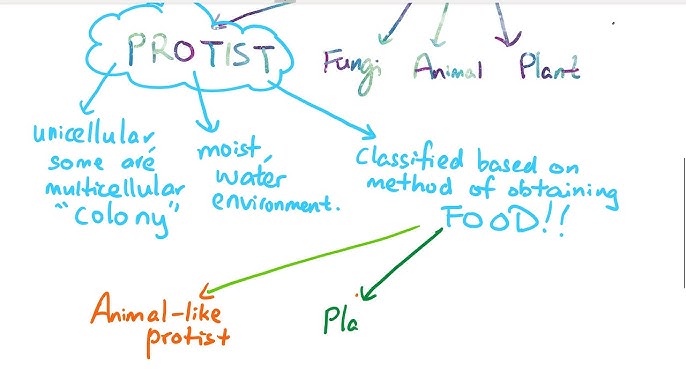 PROTIST
Fungi Animal Plant
unicellular,
some are
multicellular
"colony"
moist,
water
environment.
Classified based on
method of obtaining
FOOD!!
Animal-like
protist
Pla